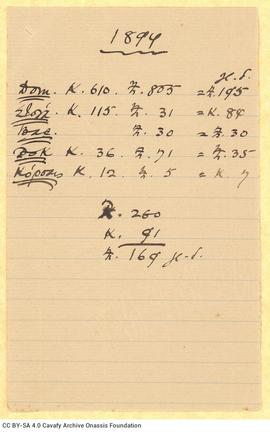 1894
Dom. Κ. 610 Ζ. 805 = Ζ. 195
Κ. 115 Ζ. 31 = Κ. 84
Bac. Ζ. 30 = Ζ. 30
Κ. 36 Ζ. 71 = Ζ. 35
Κ. 12 Ζ. 5 = Κ. 7
Ζ. 260
Κ. 91
Ζ. 169
CC BY-SA 4.0 Cavafy Archive Onassis Foundation